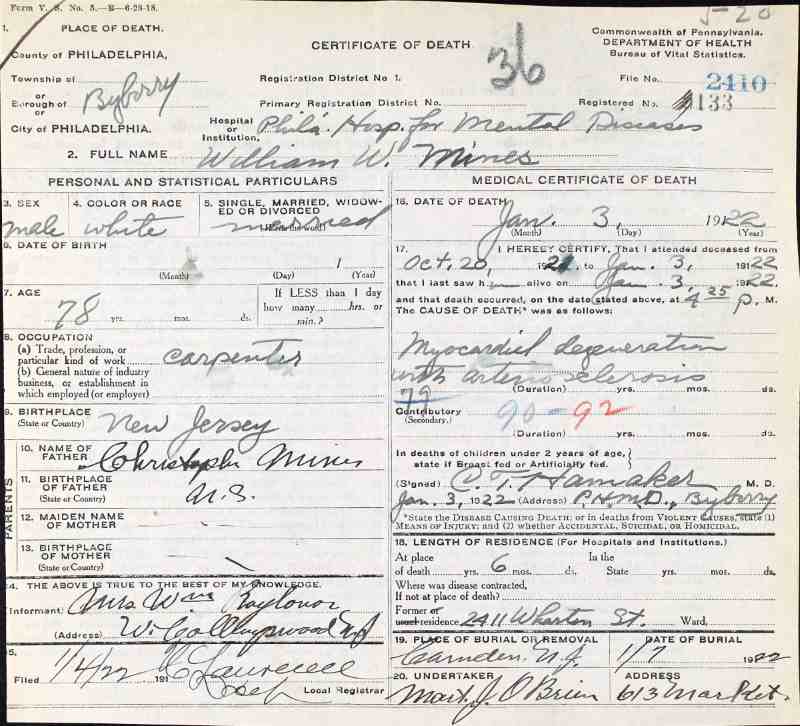 Form V. S. No. 5.—B—6-28-18.
1. PLACE OF DEATH.
County of PHILADELPHIA,
Township of
or
Borough of Byberry
or
City of PHILADELPHIA.
CERTIFICATE OF DEATH
36
Registration District No. 1.
Primary Registration District No.
Hospital or Institution, Phila. Hosp. for Mental Diseases
5-20
Commonwealth of Pennsylvania.
DEPARTMENT OF HEALTH
Bureau of Vital Statistics.
File No. 2410
Registered No. 133
2. FULL NAME William W. Mines
PERSONAL AND STATISTICAL PARTICULARS
3. SEX male
4. COLOR OR RACE white
5. SINGLE, MARRIED, WIDOWED OR DIVORCED married
(Write the word)
6. DATE OF BIRTH
1
(Month) (Day) (Year)
7. AGE
78 yrs. mos. ds.
If LESS than 1 day
how many hrs. or
min.?
8. OCCUPATION
(a) Trade, profession, or
particular kind of work carpenter
(b) General nature of industry
business, or establishment in
which employed (or employer)
9. BIRTHPLACE
(State or Country) New Jersey
PARENTS
10. NAME OF
FATHER Christopher Mines
11. BIRTHPLACE
OF FATHER
(State or Country) U.S.
12. MAIDEN NAME
OF MOTHER
13. BIRTHPLACE
OF MOTHER
(State or Country)
14. THE ABOVE IS TRUE TO THE BEST OF MY KNOWLEDGE.
Informant Mrs Wm
(Address) W. Collingswood NJ
15.
Filed 1/4/22 191
Local Registrar
MEDICAL CERTIFICATE OF DEATH
16. DATE OF DEATH
Jan. 3, 1922
(Month) (Day) (Year)
17. I HEREBY CERTIFY, That I attended deceased from
Oct. 20, 1921, to Jan. 3, 1922
that I last saw him alive on Jan. 3, 1922.
and that death occurred, on the date stated above, at 4 25 P. M.
The CAUSE OF DEATH* was as follows:
Myocardial degeneration
with arteriosclerosis
79 (Duration) yrs. mos. ds.
Contributory 90-92
(Secondary.)
(Duration) yrs. mos. ds.
In deaths of children under 2 years of age,
state if Breast fed or Artificially fed.
(Signed) C. T. Hamaker M. D.
Jan. 3, 1922 (Address) P.H.M.D., Byberry
*State the DISEASE CAUSING DEATH; or in deaths from VIOLENT CAUSES, state (1)
MEANS OF INJURY; and (2) whether ACCIDENTAL, SUICIDAL, OR HOMICIDAL.
18. LENGTH OF RESIDENCE (For Hospitals and Institutions.)
At place In the
of death yrs. 6 mos. ds. State yrs. mos. ds.
Where was disease contracted,
If not at place of death?
Former or
usual residence 2411 Wharton St. Ward,
19. PLACE OF BURIAL OR REMOVAL
Camden, N.J.
DATE OF BURIAL
1/7 1922
20. UNDERTAKER
Mart. J. O'Brien
ADDRESS
613 Market.